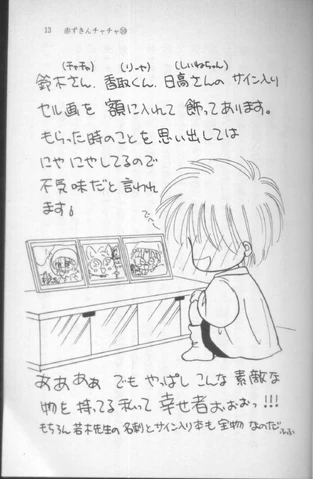 13 赤ずきんチャチャ⑩
(チャチャ) (りーや) (しいねちゃん)
鈴木さん、香取くん、日高さんの サイン入り
セル画を 額に入れて 飾ってあります。
もらった時のことを 思い出しては
にや にや してるので
不気味だと 言われ
ます。
ああああ でも やっぱし こんな 素敵な
物を 持ってる 私って 幸せ者おおおっ!!!
もちろん 若木先生の 名刺と サイン入り本も 宝物 なのだ ふふ